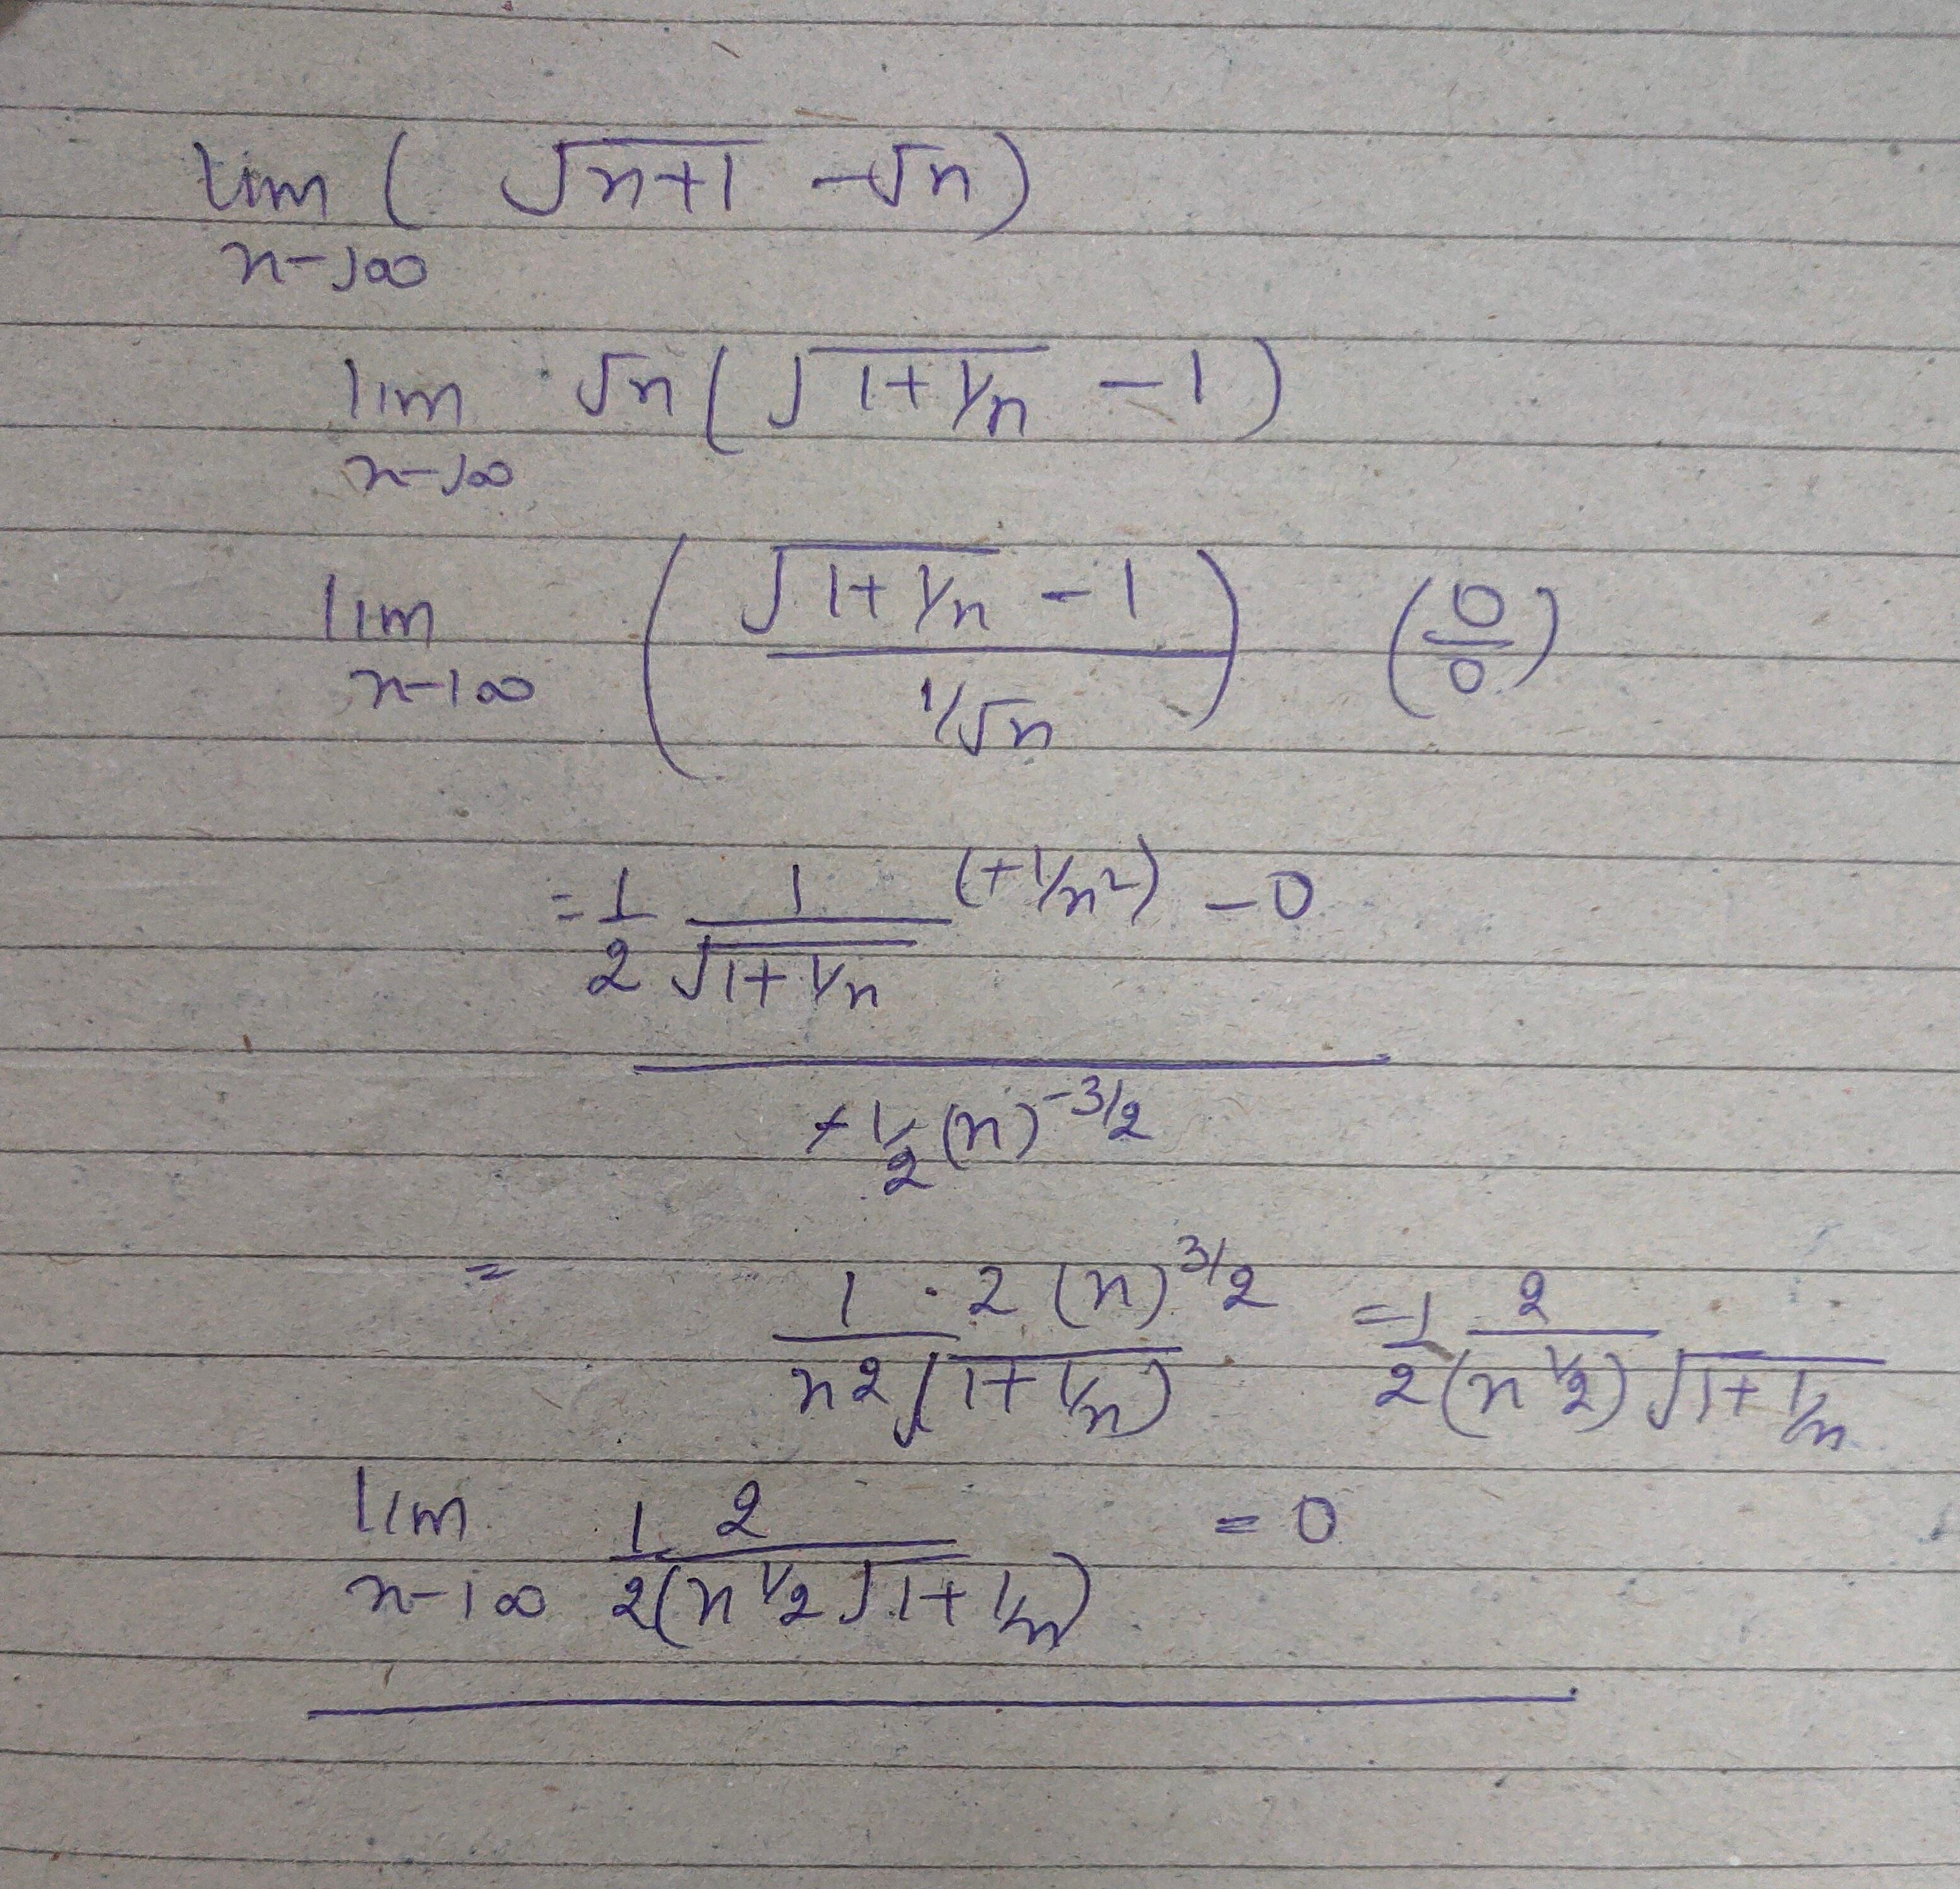 lim ( √n+1 - √n)
n→∞
lim √n ( √1+1/n - 1 )
n→∞
lim ( √1+1/n - 1 / 1/√n ) (0/0)
n→∞
= 1/2 1/√1+1/n (+1/n²) - 0
+ 1/2 (n)^-3/2
= 1 · 2 (n)^3/2 / n2 √(1+1/n) = 1/2 2/(n^1/2) √1+1/n
lim 1/2 2/(n^1/2 √1+1/n) = 0
n→∞